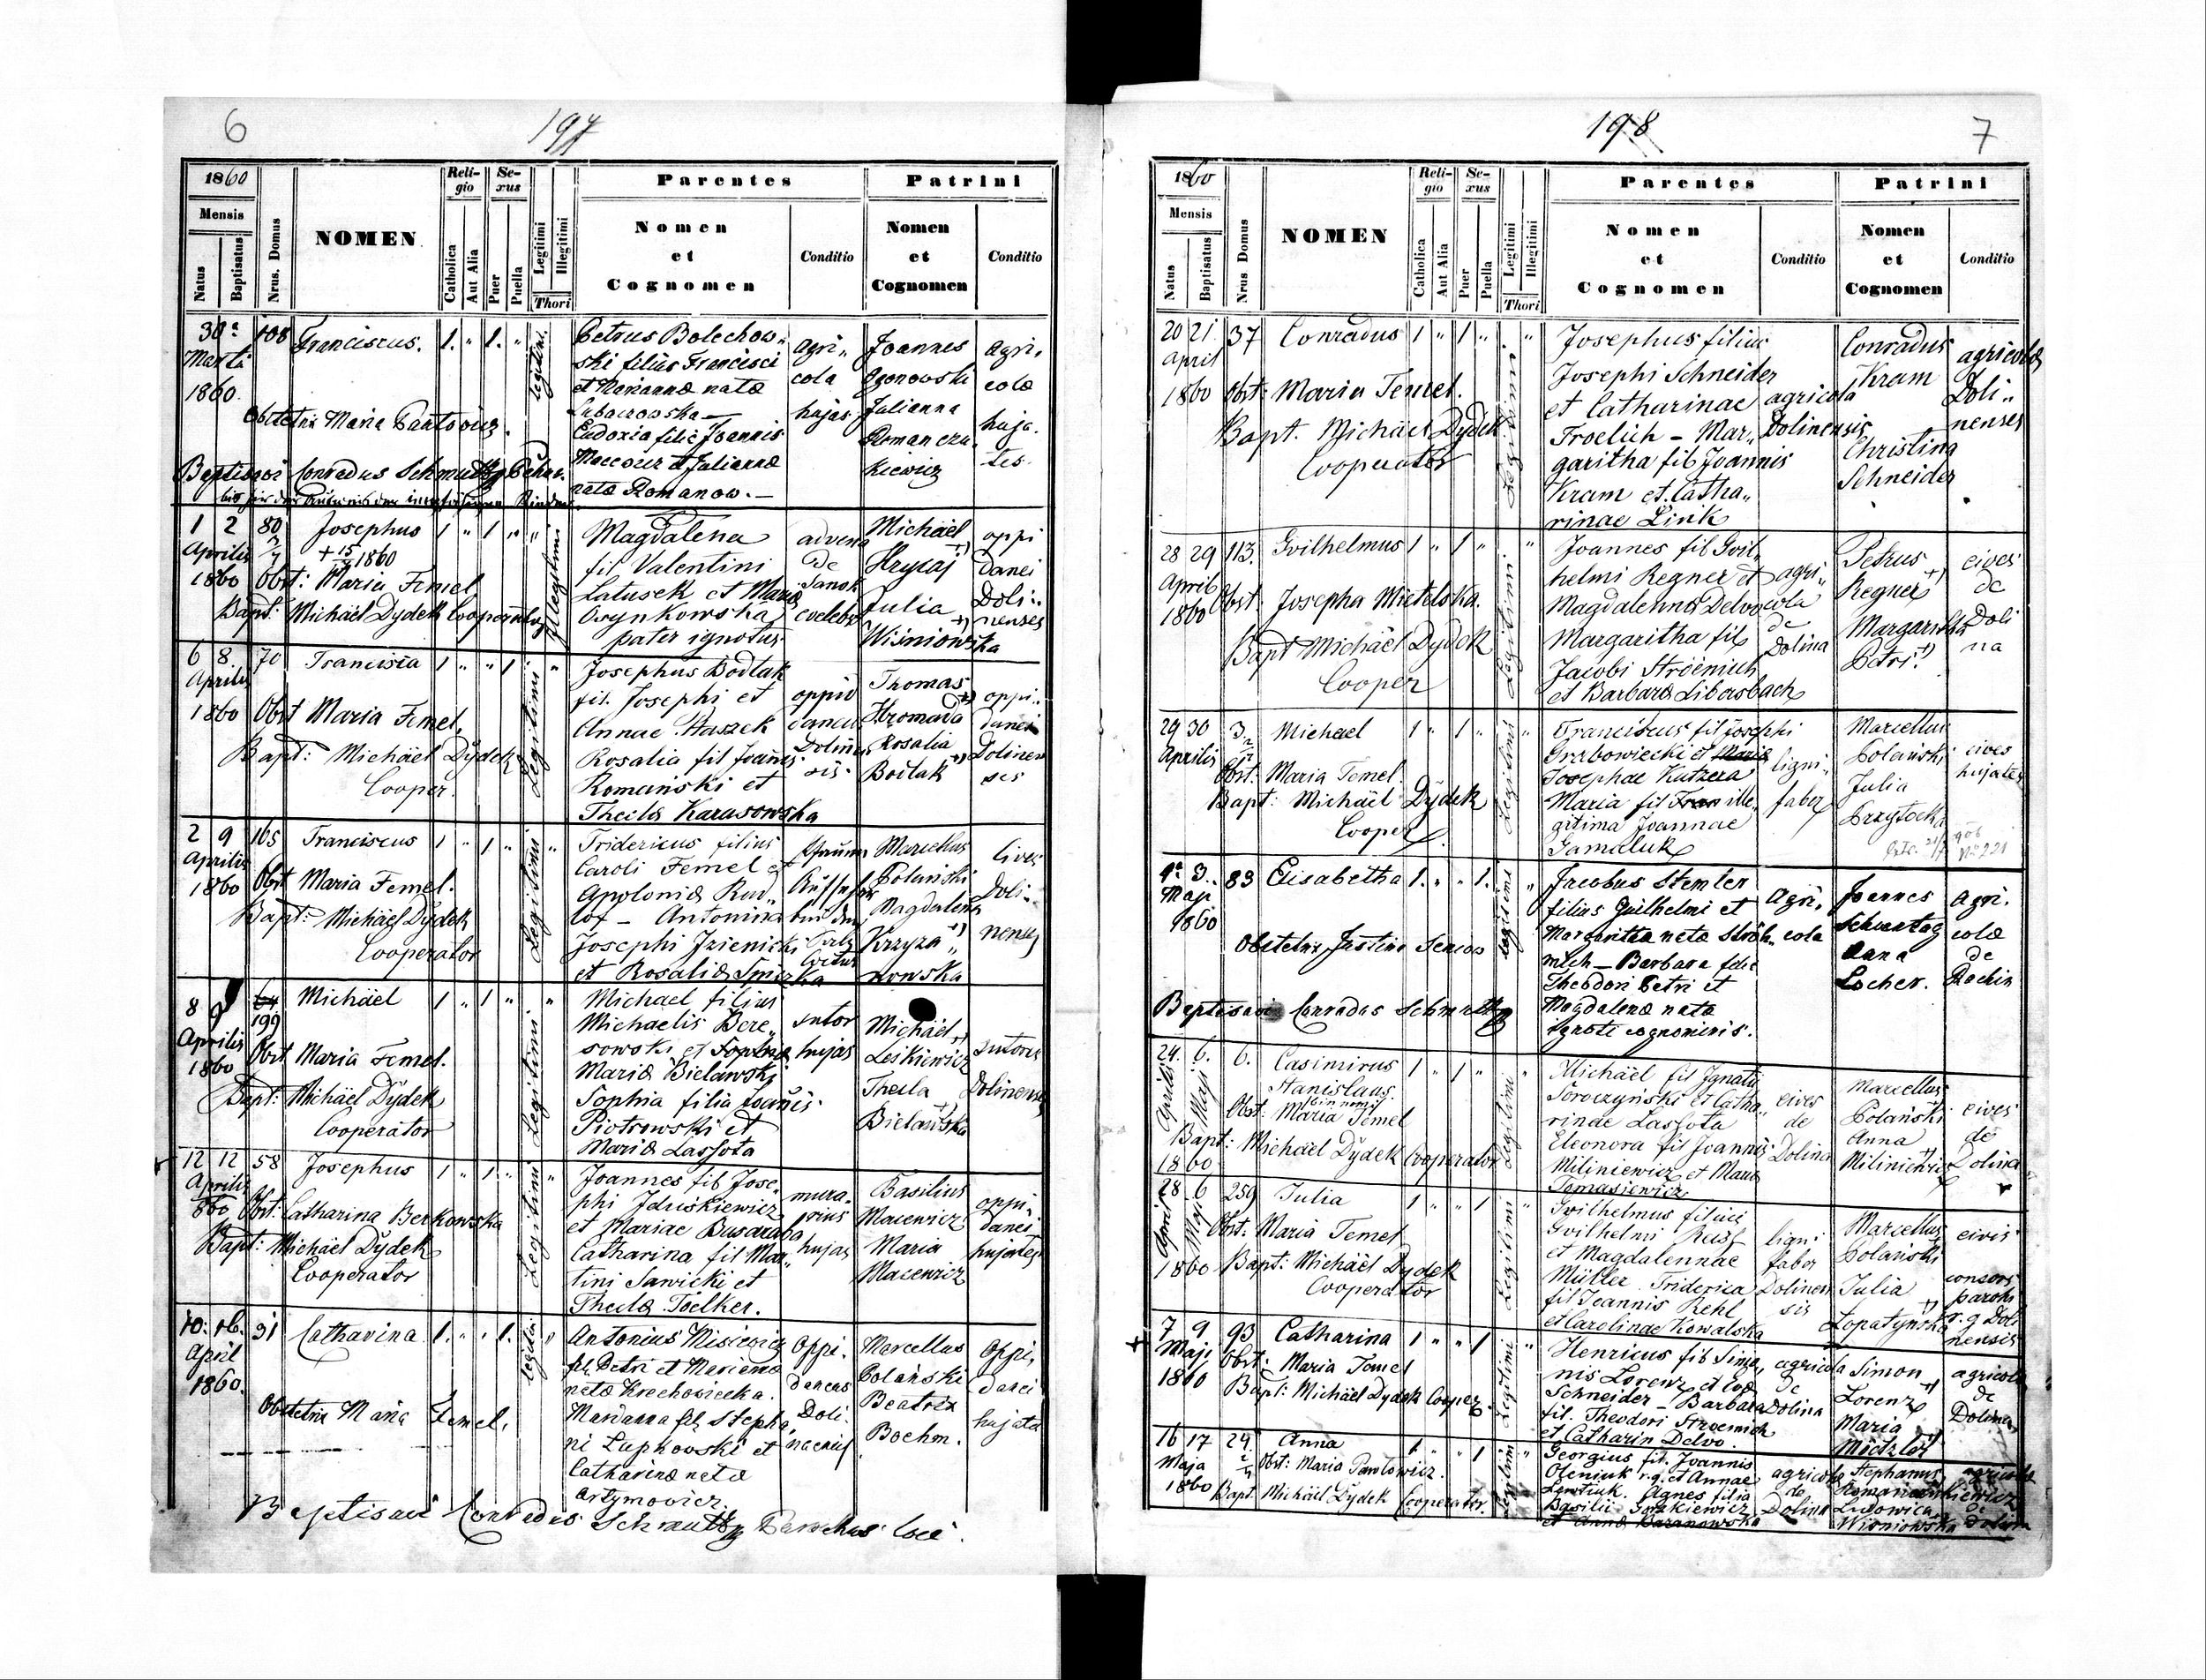 6
197
1860
Mensis
Natus
Baptisatus
Nrus. Domus
NOMEN
Religio
Catholica
Aut Alia
Sexus
Puer
Puella
Legitimi
Illegitimi
Thori
Parentes
Nomen
et
Cognomen
Conditio
Patrini
Nomen
et
Cognomen
Conditio
30a 108 Franciscus. 1. " 1. "
Marti
1860.
Obstetrix Maria Pawtowicz.
Baptisavi Conradus Schmutz
legitimi.
Petrus Bolechow"
ski filius Francisci
et Marianna nata
Eudoxia filia Joannis
et Julianna
nata Romanow. —
agri"
cola
hujas
Joannes
Ogonowski
Julianna
Romancza
kiewicz
agri,
cola
huja.
tes.
1 2 80 Josephus 1 " 1 " "
Aprilis + 15 1860
1860 Obst: Maria Femel
Bapt: Michäel Dydek Cooperator
Illegitimi
Magdalena
fil Valentini
Latusek et Maria
Orynkowska
pater ignotus
advena
de
Sanok
coelebs
Michäel
Hrycaj
Julia
Wisniowska
oppi
danei
Doli"
nenses
6 8. 70 Francisca 1 " " 1 "
Aprilis
1860 Obst Maria Femel,
Bapt: Michäel Dydek
Cooper.
Legitimi
Josephus Bodlak
fil. Josephi et
Annae Haszek
Rosalia fil Joannis
Romanski et
Thecla Karasowska
oppid
daneus
Dolinen
sis
Thomas
Hromada
Rosalia
Bodlak
oppi"
danei
Dolinen
ses
2 9 165 Franciscus 1 " 1 " "
Aprilis
1860 Obst Maria Femel.
Bapt: Michäel Dydek
Cooperator
Legitimi
Fridericus filius
Caroli Femel et
Apolonia Rud"
lof - Antonina
Josephi Jzienicki
et Rosalia Spiczka
Marcellus
Polański
Magdalena
Krzyza"
nowska
Cives
Doli"
nenses
8 9 199 Michäel 1 " 1 " "
Aprilis
1860 Obst Maria Femel.
Bapt: Michäel Dydek
Cooperator
Legitimi
Michael filius
Michaelis Bere"
sowski et Sophia
Maria Bielawski
Sophia filia Joannis
Piotrowski et
Maria Lassota
sutor
hujas
Michäel
Leskiewicz
Thecla
Bielawska
sutores
Dolinenses
12 12 58 Josephus 1 " 1 "
Aprilis
860 Obst: Catharina Berkowska
Bapt: Michäel Dydek
Cooperator
Legitimi
Joannes fil Jose"
phi Jduskiewicz
et Mariae Busaraba
Catharina fil Mar"
tini Sawicki et
Thecla Toelker.
mura"
rius
hujas
Basilius
Macewicz
Maria
Macewicz
oppi"
danei
hujates
10. 16. 31 Catharina 1. " " 1. "
April
1860.
Obstetrix Maria Femel,
legitimi
Antonius Misiewicz
fil Petri et Marianna
nata Krechowiecka.
Marianna fil Stepha"
ni Lupkowski et
Catharina nata
Artymowicz
Oppi.
daneus
Doli.
Marcellus
Polański
Beatrix
Boehm.
Oppi,
danei
hujates
Baptisavi Conradus Schmutz Parochus loci.
198
7
1860
Mensis
Natus
Baptisatus
Nrus Domus
NOMEN
Religio
Catholica
Aut Alia
Sexus
Puer
Puella
Legitimi
Illegitimi
Thori
Parentes
Nomen
et
Cognomen
Conditio
Patrini
Nomen
et
Cognomen
Conditio
20 21 37 Conradus 1 " 1 " "
April
1860 Obst: Maria Femel.
Bapt. Michäel Dydek
Cooperator
Legitimi
Josephus filius
Josephi Schneider
et Catharinae
Froelich - Mar"
garitha fil Joannis
Kram et Catha"
rinae Link
agricola
Dolinensis
Conradus
Kram
Christina
Schneider
agricola
Doli"
nenses
28 29 113. Gvilhelmus 1 " 1 " "
April
1860 Obst. Josepha Mietelska.
Bapt Michäel Dydek
Cooper
Legitimi
Joannes fil Gvil"
helmi Regner et
Magdalenna Delvo
Margaritha fil
Jacobi Stroemich
et Barbara Libersbach
agri"
cola
de
Dolina
Petrus
Regner
Margaritha
Petri
cives
de
Doli
na
29 30 3 Michael 1 " 1 " "
Aprilis
Obst. Maria Femel.
Bapt: Michäel Dydek
Cooper
Legitimi
Franciscus fil Josephi
Grabowiecki et Maria
Josephae Kutzera
Maria fil Fran ille"
gitima Joannae
Gamaluk
ligni"
faber
Marcellus
Polański
Julia
Przytocka
cives
hujates
No 221
1a 3. 83 Elisabetha 1. " " 1. "
Maji
1860
Obstetrix Justina Senios
Baptisavi Conradus Schmutz
legitimi
Jacobus Stemler
filius Guilhelmi et
Margaritha nata Ströh"
mich - Barbara filia
Theodori Petri et
Magdalena nata
ignoti cognominis.
Agri"
cola
Joannes
Schwartz
Anna
Locher.
agri.
cola
de
Rachin
24. 6. 6. Casimirus 1 " 1 " "
Aprilis Maji Stanislaus
bin nomi
Obst: Maria Femel
Bapt: Michäel Dydek Cooperator
1860
Legitimi
Michäel fil Jgnatii
Soroczyński et Catha"
rinae Lassota
Eleonora fil Joannis
Miliniewicz et Maria
Tomasiewicz
cives
de
Dolina
Marcellus
Polański
Anna
Miliniewicz
cives
de
Dolina
28 6 259 Julia 1 " " 1 "
April Maji Obst: Maria Femel
1860 Bapt: Michäel Dydek
Cooperator
Legitimi
Gvilhelmus filius
Gvilhelmi Russ
et Magdalennae
Müller. Friderica
fil Joannis Rehl
et Carolinae Kowalska
ligni
faber
Dolinen
sis
Marcellus
Polański
Julia
Lopatynska
civis
consors
parochi
r. g. Doli
nensis
7 9 93 Catharina 1 " " 1 "
Maji Obst: Maria Femel
1860 Bapt: Michäel Dydek Cooper.
Legitimi
Henricus fil Simo"
nis Lorenz et Eva
Schneider - Barbara
fil. Theodori Stroemich
et Catharin Delvo.
agricola
de
Dolina
Simon
Lorenz
Maria
agricola
de
Dolina
16 17 29. Anna 1 " " 1 "
Maja Obst: Maria Pawlowicz.
1860 Bapt. Michäel Dydek Cooperator.
Legitimi
Georgius fil. Joannis
Oleniuk r. g. et Annae
Agnes filia
Basilii Goskiewicz
et Anna Baranowska
agricola
de
Dolina
Stephanus
Romanienkiewicz
Ludowica
Wisniowska
agricola
de
Dolina